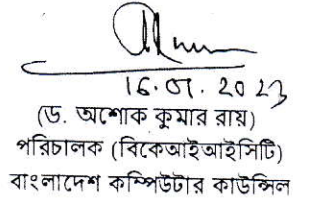 16.01.2023
(ড. অশোক কুমার রায়)
পরিচালক (বিকেআইআইসিটি)
বাংলাদেশ কম্পিউটার কাউন্সিল